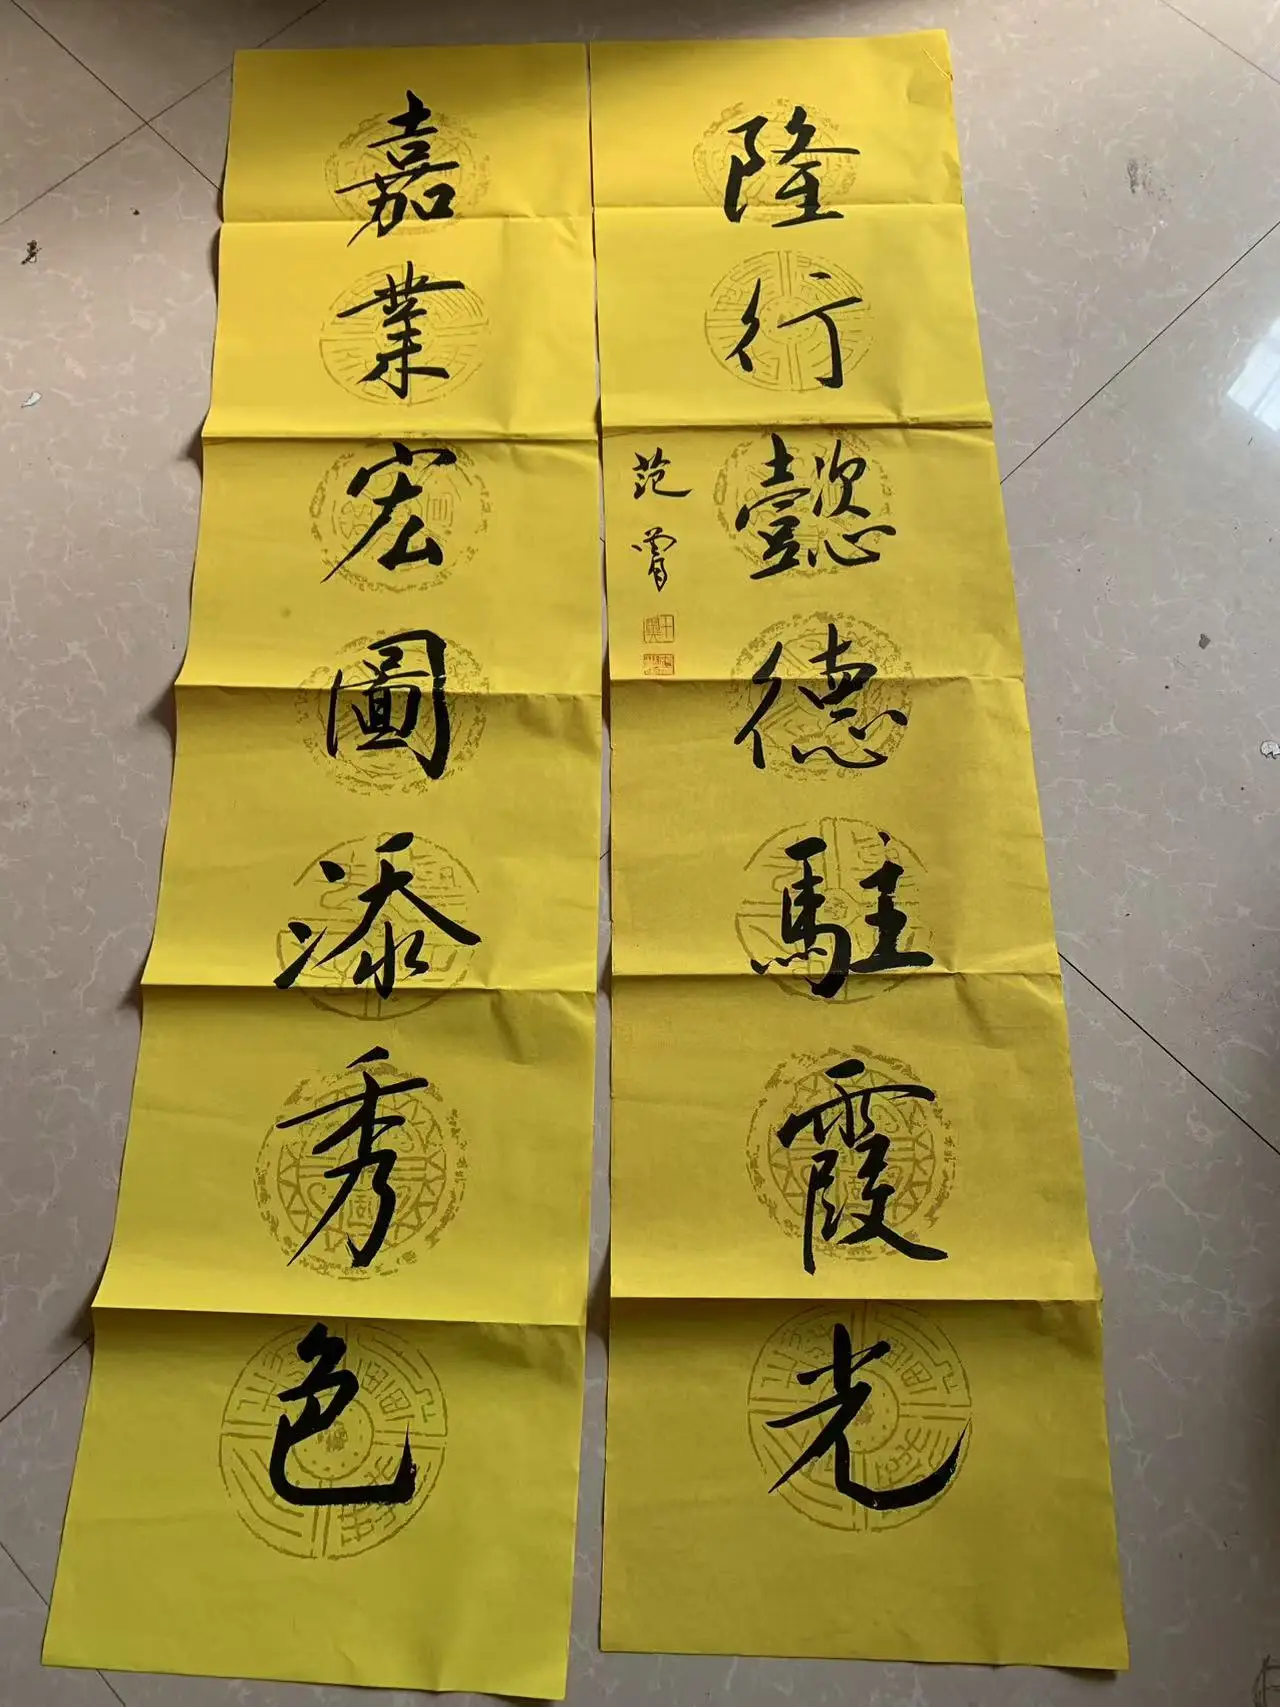 嘉業宏圖添秀色
隆行懿德駐霞光
范曾